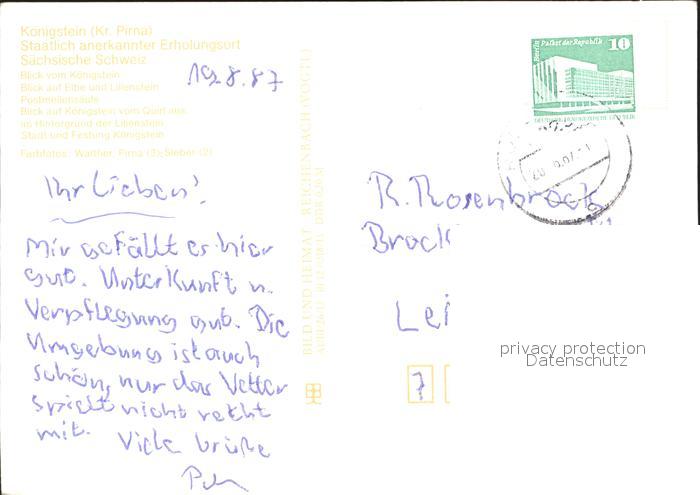 Königstein (Kr. Pirna)
Staatlich anerkannter Erholungsort
Sächsische Schweiz
Blick vom Königstein
Blick auf Elbe und Lilienstein
Postmeilensäule
Blick auf Königstein vom Quirl aus,
im Hintergrund der Lilienstein
Stadt und Festung Königstein
Farbfotos: Walther, Pirna (3), Sieber (2)
19.8.87
Ihr Lieben!
Mir gefällt es hier
gut. Unterkunft u.
Verpflegung gut. Die
Umgebung ist auch
schön, nur das Wetter
spielt nicht recht
mit. Viele Grüße
BILD UND HEIMAT REICHENBACH (VOGTL)
Berlin Palast der Republik
10
DEUTSCHE DEMOKRATISCHE REPUBLIK
R. Rosenbrock
Brock
Lei
7
privacy protection
Datenschutz